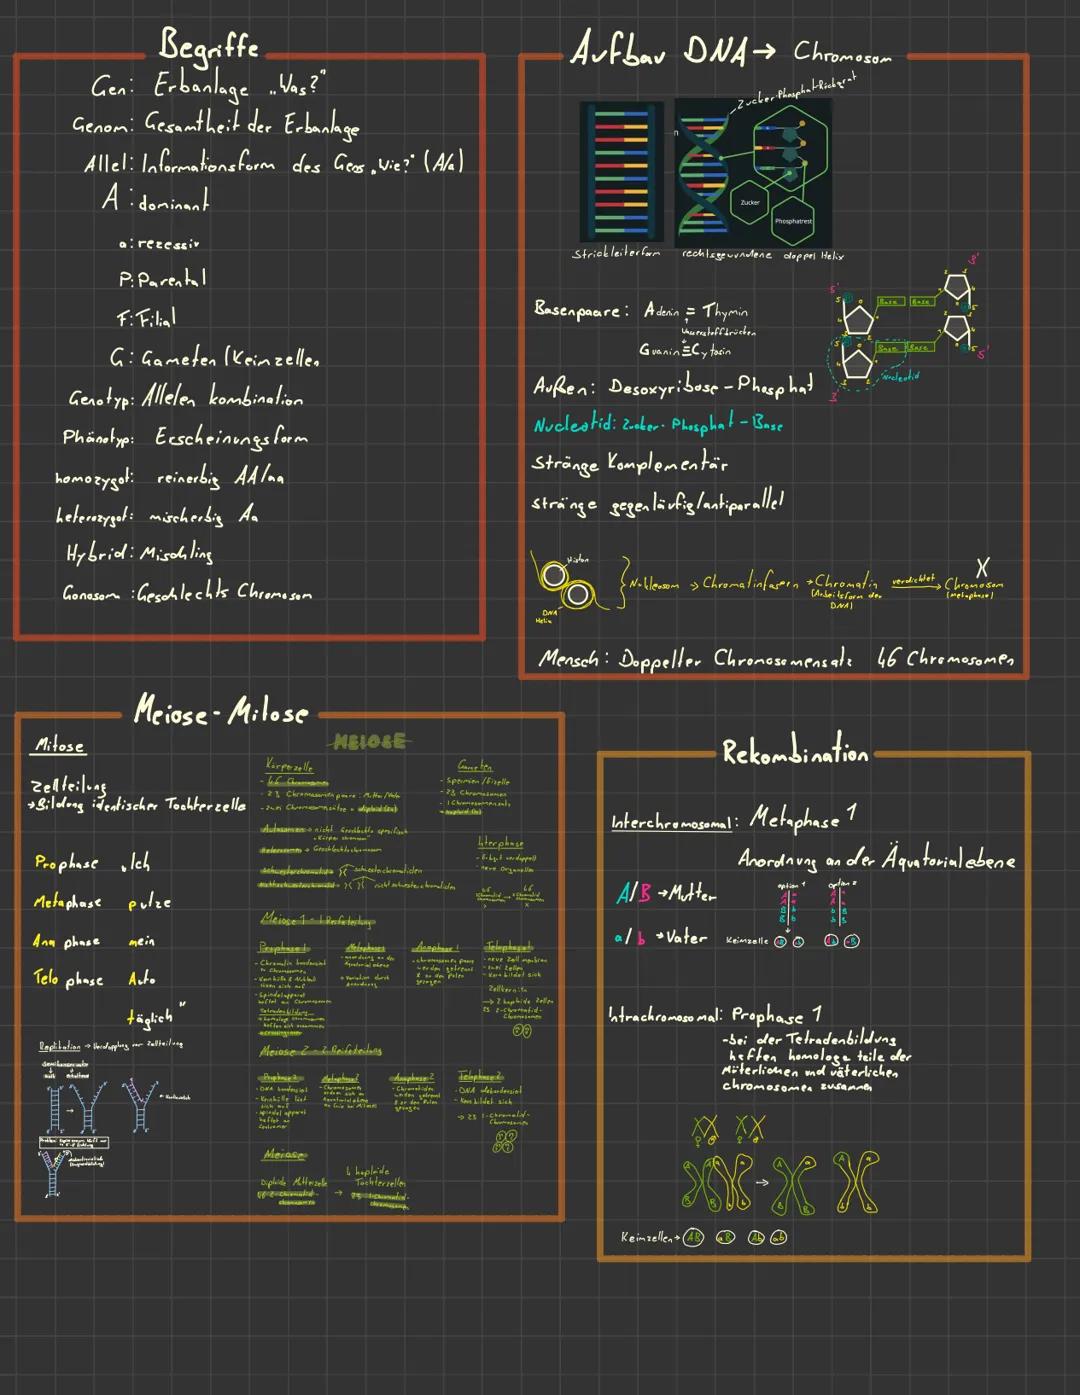 Begriffe
Gen: Erbanlage „Was?"
Genom: Gesamtheit der Erbanlage
Allel: Informationsform des Gens „Wie?" (A/a)
A: dominant
a: rezessiv
P: Parental
F: Filial
G: Gameten (Keimzellen
Genotyp: Allelen kombination
Phänotyp: Erscheinungsform
homozygot: reinerbig AA/aa
heterozygot: mischerbig Aa
Hybrid: Mischling
Gonosom: Geschlechts Chromosom
Aufbau DNA → Chromosom
Zucker-Phosphat-Rückgrat
n
Zucker
Phosphatrest
Strickleiterform
rechtsgewundene doppel Helix
Basenpaare: Adenin = Thymin
Wasserstoffbrücken
Guanin ≡ Cytosin
5'
3'
Base Base
Base Base
Nucleotid
3'
5'
Außen: Desoxyribose-Phosphat
Nucleotid: Zucker-Phosphat-Base
Stränge Komplementär
stränge gegenläufig/antiparallel
Histon
DNA Helix
Nukleosom → Chromatinfasern → Chromatin verdichtet → Chromosom
(Arbeitsform der DNA)
(Metaphase)
Mensch: Doppelter Chromosomensatz 46 Chromosomen
Meiose-Mitose
Mitose
Zellteilung
→ Bildung identischer Tochterzelle
Prophase „Ich
Metaphase pulze
Ana phase mein
Telo phase Auto
täglich"
Replikation → Verdopplung vor Zellteilung
MEIOSE
Körperzelle
- 46 Chromosome
- 23 Chromosomenpaare: Mutter/Vater
- zwei Chromosomensätze =
Gameten
- Spermien/Eizelle
- 23 Chromosomen
- 1 Chromosomensatz
Autosomen → nicht Geschlechts spezifisch
→ Geschlechtschromosom
Schwesterchromatiden
nicht schwesterchromatiden
Interphase
- neue Organellen
Meiose 1 - 1 Reifeteilung
Prophase 1
- Chromatin kondensiert
zu Chromosomen
- Kernhülle &
lösen sich auf
- Spindelapparat
heftet an Chromosomen
Tetradenbildung
→ homologe Chromosomen
heften sich zusammen
Metaphase
- Anordnung an der
Äquatorialebene
→ Variation durch
Anordnung
Anaphase 1
- chromosomen paare
werden getrennt
& zu den Polen
gezogen
Telophase 1
- neue Zell membran
- zwei Zellen
- Kern bildet sich
→ 2 haploide Zellen
23 2-Chromatid-
Chromosomen
Meiose 2 - 2 Reifeteilung
Prophase 2
- DNA kondensiert
- Kernhülle löst
sich auf
- spindel apparat
heftet an
Metaphase 2
- Chromosomen
ordnen sich an
Äquatorialebene
an (wie bei Mitose)
Anaphase 2
- Chromatiden
werden getrennt
& zu den Polen
gezogen
Telophase 2
- DNA dekondensiert
- Kern bildet sich
→ 23 1-Chromatid-
Chromosomen
Meiose
Diploide Mutterzelle → 4 haploide
Tochterzellen
Rekombination
Interchromosomal: Metaphase 1
Anordnung an der Äquatorialebene
A/B → Mutter
a/b → Vater
option 1
option 2
Keimzelle
Intrachromosomal: Prophase 1
-bei der Tetradenbildung
heften homologe teile der
Mütterlichen und väterlichen
chromosomen zusammen
Keimzellen → AB aB Ab ab